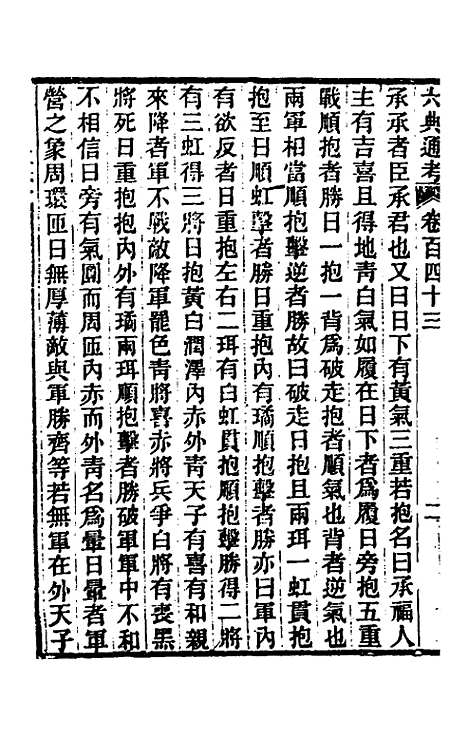 六典通考 卷百四十三 二
承承者臣承君也又曰日下有黃氣三重若抱名曰承福人
主有吉喜且得地靑白氣如履在日下者爲履日旁抱五重
戰順抱者勝日一抱一背爲破走抱者順氣也背者逆氣也
兩軍相當順抱擊逆者勝故曰破走日抱且兩珥一虹貫抱
抱至日順虹擊者勝日重抱內有璚順抱擊者勝亦曰軍內
有欲反者日重抱左右二珥有白虹貫抱順抱擊勝得二將
有三虹得三將日抱黃白潤澤內赤外靑天子有喜有和親
來降者軍不戰敵降軍罷色靑將喜赤將兵爭白將有喪黑
將死日重抱抱內外有璚兩珥順抱擊者勝破軍軍中不和
不相信日旁有氣圓而周匝內赤而外靑名爲暈日暈者軍
營之象周環匝日無厚薄敵與軍勝齊等若無軍在外天子